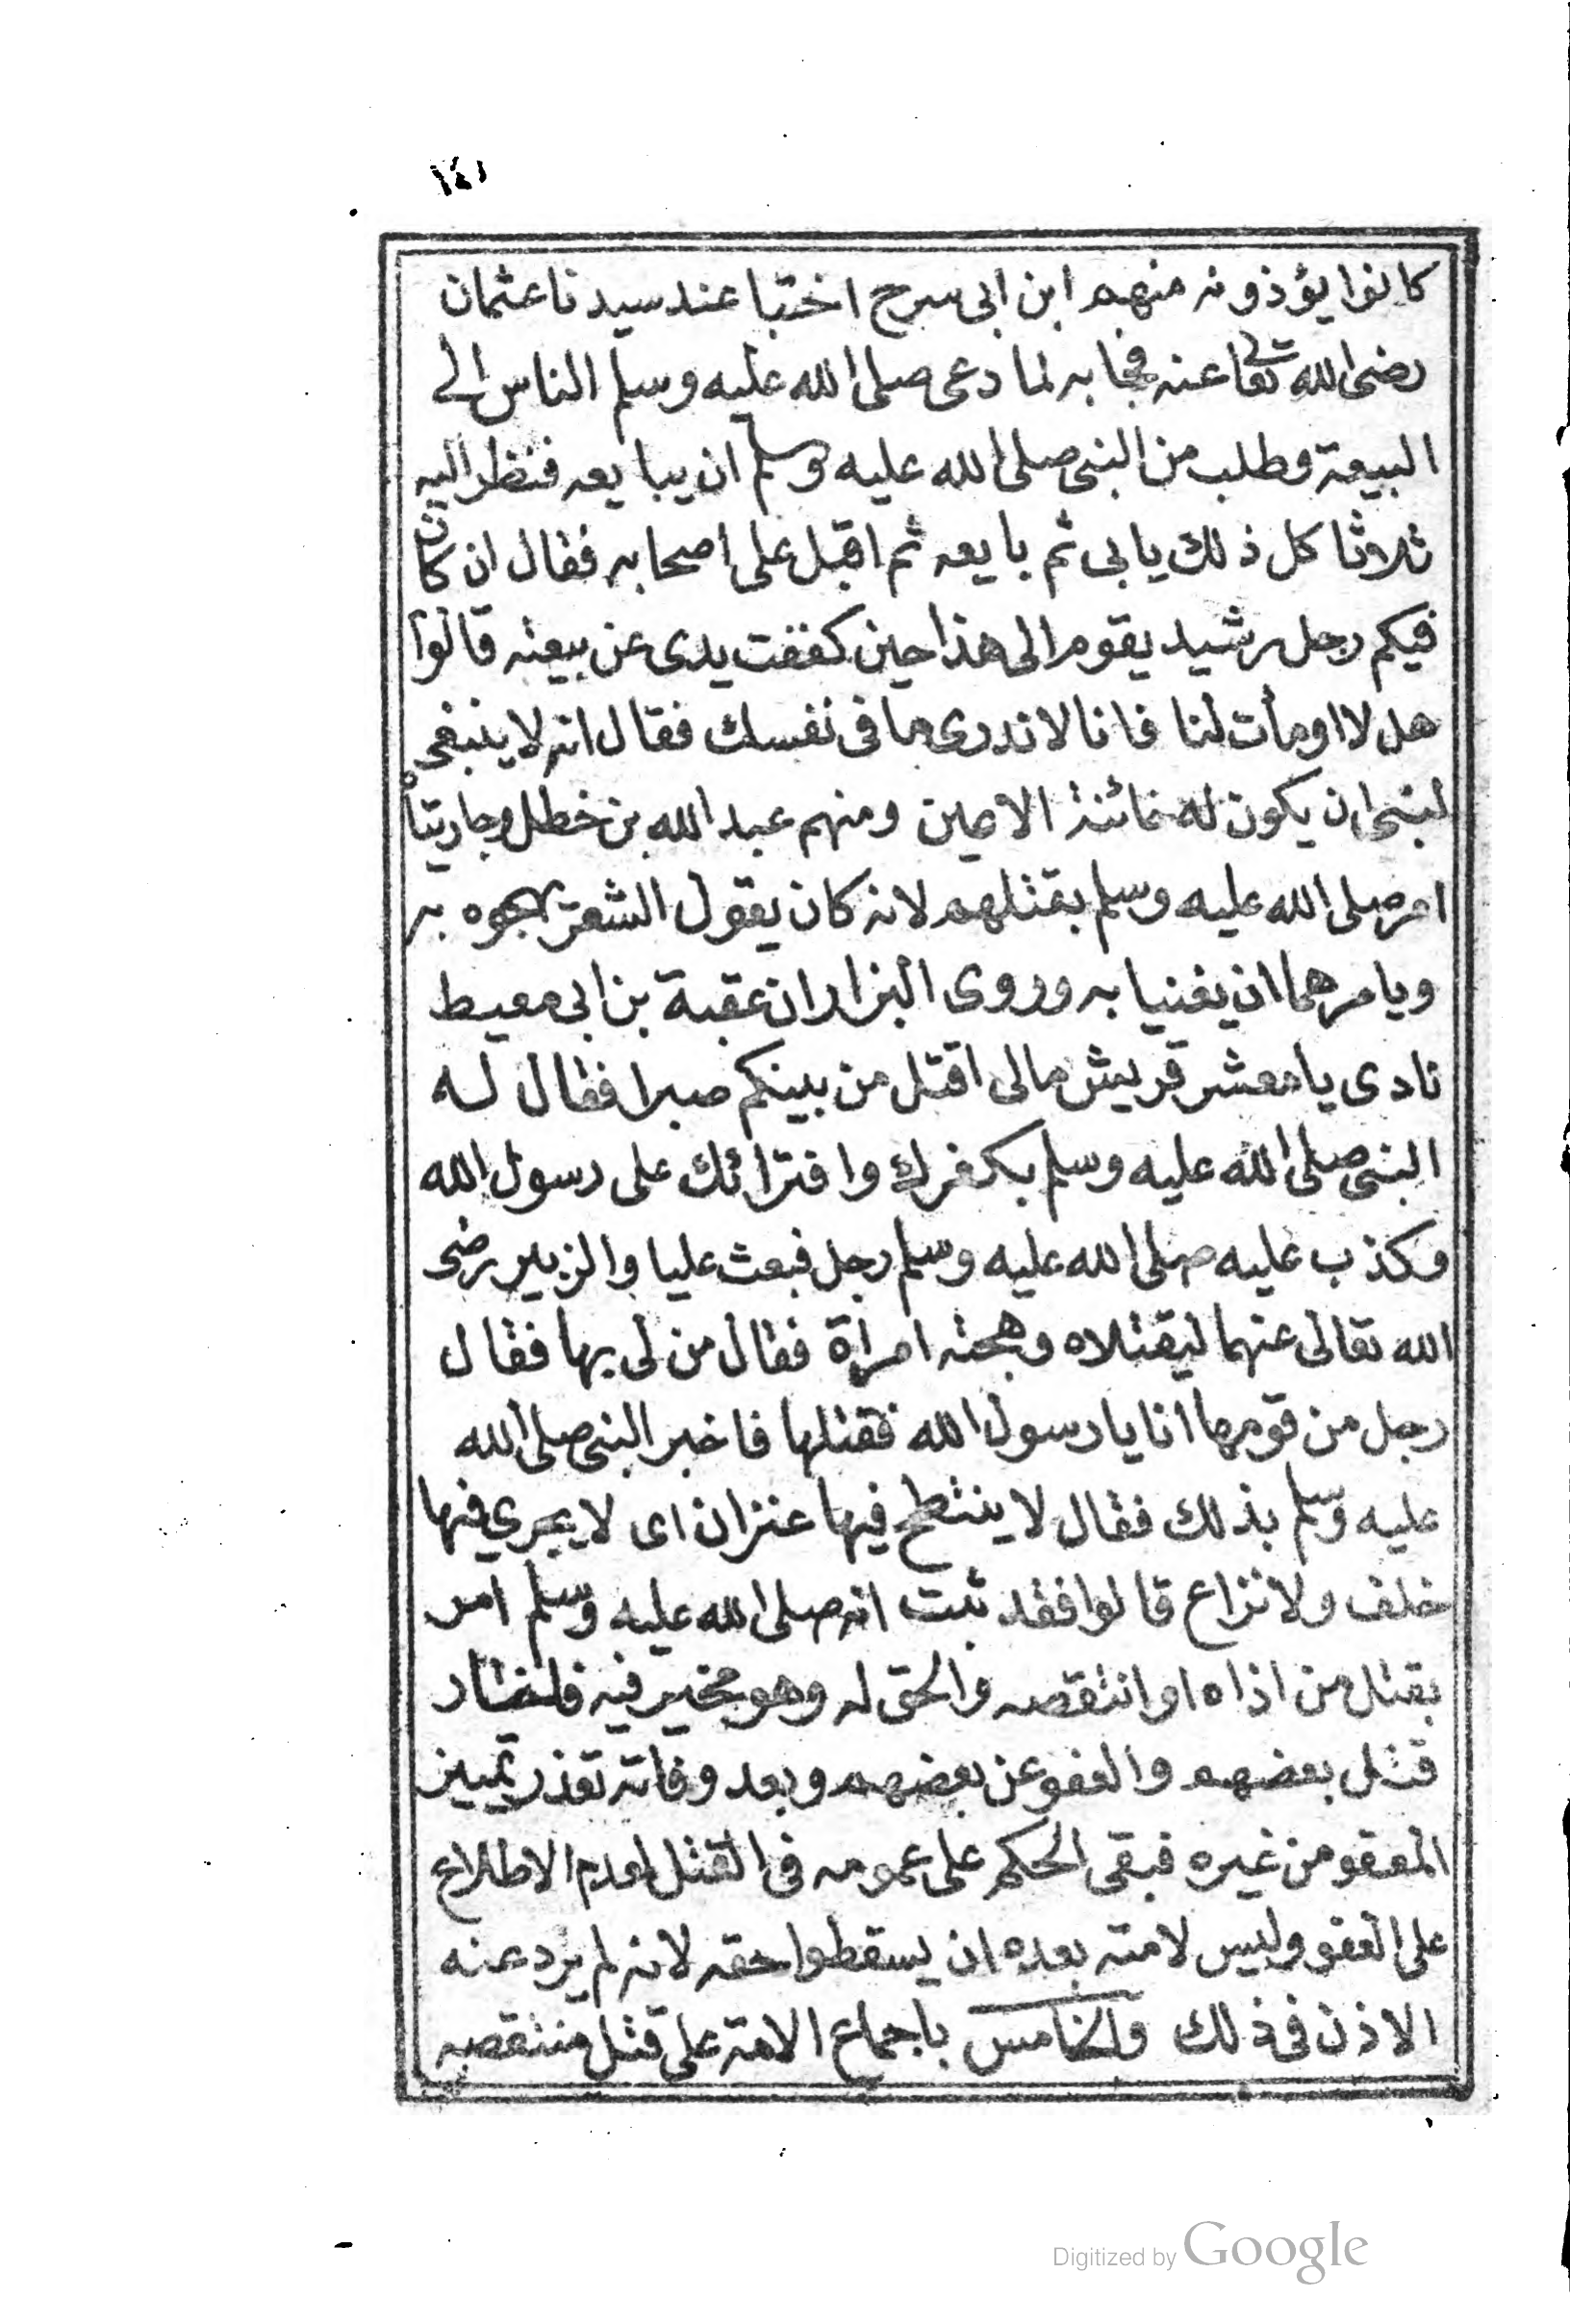 ١٤١
كانوا يؤذونه منهم ابن ابى سرح اختبا عند سيدنا عثمان
رضى الله تعالى عنه فجا به لما دعى صلى الله عليه وسلم الناس الى
البيعة وطلب من النبى صلى الله عليه وسلم ان يبايعه فنظر اليه
ثلاثا كل ذلك يابى ثم بايعه ثم اقبل على اصحابه فقال ان كان
فيكم رجل رشيد يقوم الى هذا حين كففت يدى عن بيعته قالوا
هل لا اومأت لنا فانا لا ندرى ما فى نفسك فقال انه لا ينبغى
لنبى ان يكون له خائنة الاعين ومنهم عبد الله بن خطل وجاريتاه
امر صلى الله عليه وسلم بقتلهم لانه كان يقول الشعر يهجوه به
ويامرهما ان يغنيا به وروى البزار ان عقبة بن ابى معيط
نادى يا معشر قريش مالى اقتل من بينكم صبرا فقال له
النبى صلى الله عليه وسلم بكفرك وافترائك على رسول الله
وكذب عليه صلى الله عليه وسلم رجل فبعث عليا والزبير رضى
الله تعالى عنهما ليقتلاه وهجته امرأة فقال من لى بها فقال
رجل من قومها انا يا رسول الله فقتلها فاخبر النبى صلى الله
عليه وسلم بذلك فقال لا ينتطح فيها عنزان اى لا يجري فيها
خلف ولا نزاع قالوا فقد ثبت انه صلى الله عليه وسلم امر
بقتل من اذاه او انتقصه والحق له وهو مخير فيه فاختار
قتل بعضهم والعفو عن بعضهم وبعد وفاته تعذر تمييز
المعفو من غيره فبقى الحكم على عمومه فى القتل لعدم الاطلاع
على العفو وليس لامته بعده ان يسقطوا حقه لانه لم يرد عنه
الاذن فى ذلك والخامس باجماع الامة على قتل منتقصه
Digitized by Google